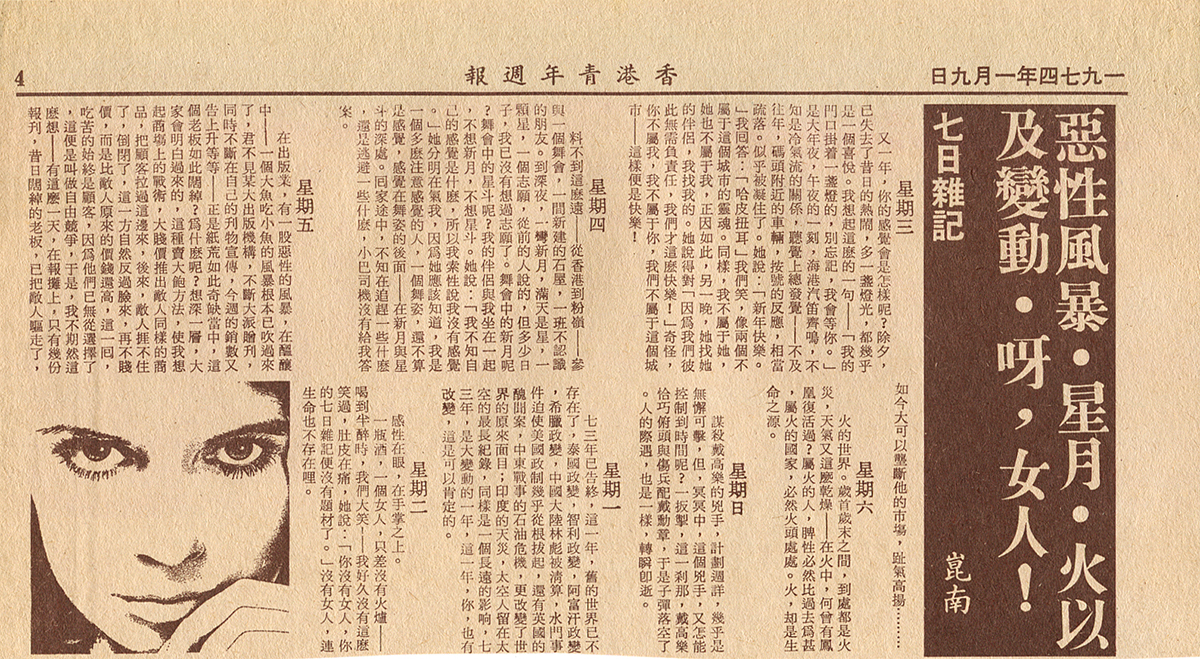 一九七四年一月九日
香港青年週報
4
惡性風暴・星月・火以
及變動・呀，女人！
七日雜記
崑南
星期三
又一年，你的感覺會是怎樣呢？除夕，
已失去了昔日的熱鬧，多一盞燈光，都幾乎
是一個喜悅。我想起這麼的一句——「我的
門口掛着一盞燈的，別忘記，我會等你。」
是大年夜，午夜的一刻，海港汽笛齊鳴，不
知是冷氣流的關係，聽覺上總發覺——不及
往年，碼頭附近的車輛，按號的反應，相當
疏落。似乎被凝住了。她說：「新年快樂。
」我回答：「哈皮扭耳」我們笑，像兩個不
屬于這個城市的靈魂。同樣，我不屬于她，
她也不屬于我，正因如此，另一晚，她找她
的伴侶，我找我的。她說得對「因爲我們彼
此無需負責任，我們才這麼快樂！」奇怪，
你不屬我，我不屬于你，我們不屬于這個城
市——這樣便是快樂！
星期四
料不到這麼遠——從香港到粉嶺——參
與一個舞會，一間新建的石屋，一班不認識
的朋友。到深夜，一彎新月，滿天是星，一
顆星，一個志願，從前的人說的，但多少日
子，我已沒有想過志願了。舞會中的新月呢
？舞會中的星斗呢？我的伴侶與我坐在一起
，不想新月，不想星斗。她說：「我不知自
己的感覺是什麼，所以我索性說我沒有感覺
。」她分明在氣我，因爲她應該知道，我是
一個多麼注意感覺的人，一個舞姿，還不算
是感覺，感覺在舞姿的後面——在新月與星
斗的深處。囘家途中，不知在追趕一些什麼
，還是逃避一些什麼，小巴司機沒有給我答
案。
星期五
在出版業，有一股惡性的風暴，在醞釀
中——一個大魚吃小魚的風暴根本已吹過來
了，君不見某大出版機構，不斷大派贈刊，
同時不斷在自己的刊物宣傳，今週的銷數又
告上升等等——正是紙荒如此奇缺當中，這
個老板如此闊綽？爲什麼呢？想深一層，大
家會明白過來的，這種賣大飽方法，使我想
起商塲上的戰術，大賤價推出敵人同樣的商
品，把顧客拉過這邊來，後來，敵人捱不住
了，倒閉了，這一方自然反過臉來，再不賤
價，而是比敵人原來的價錢還高，這一囘，
吃苦的始終是顧客，因爲他們已無從選擇了
，這便是叫做自由競爭，于是，我不期然這
麼想——有這麼一天，在報攤上，只有幾份
報刋，昔日闊綽的老板，已把敵人驅走了，
如今大可以壟斷他的市塲，趾氣高揚…………
星期六
火的世界。歲首歲末之間，到處都是火
災，天氣又這麼乾燥——在火中，何曾有鳳
凰復活過？屬火的人，脾性必然比過去爲甚
，屬火的國家，必然火頭處處。火，却是生
命之源。
星期日
謀殺戴高樂的兇手，計劃週詳，幾乎是
無懈可擊，但，冥冥中，這個兇手，又怎能
控制到時間呢？一扳掣，這一刹那，戴高樂
恰巧俯頭與傷兵配戴勳章，于是子彈落空了
。人的際遇，也是一樣，轉瞬卽逝。
星期一
七三年已告終，這一年，舊的世界已不
存在了，泰國政變，智利政變，阿富汗政變
，希臘政變，中國大陸林彪被清算，水門事
件迫使美國政制幾乎從根拔起，還有英國的
醜聞案，中東戰事的石油危機，更改變了世
界的原來面目；印度的天災，太空人留在太
空的最長紀錄，同樣是一個長遠的影响，七
三年，是大變動的一年，這一年，你，也有
改變，這是可以肯定的。
星期二
感性在眼，在手掌之上。
一瓶酒，一個女人，只差沒有火爐——
喝到半醉時，我們大笑——我好久沒有這麼
笑過，肚皮在痛，她說：「你沒有女人，你
的七日雜記便沒有題材了。」沒有女人，連
生命也不存在哩。